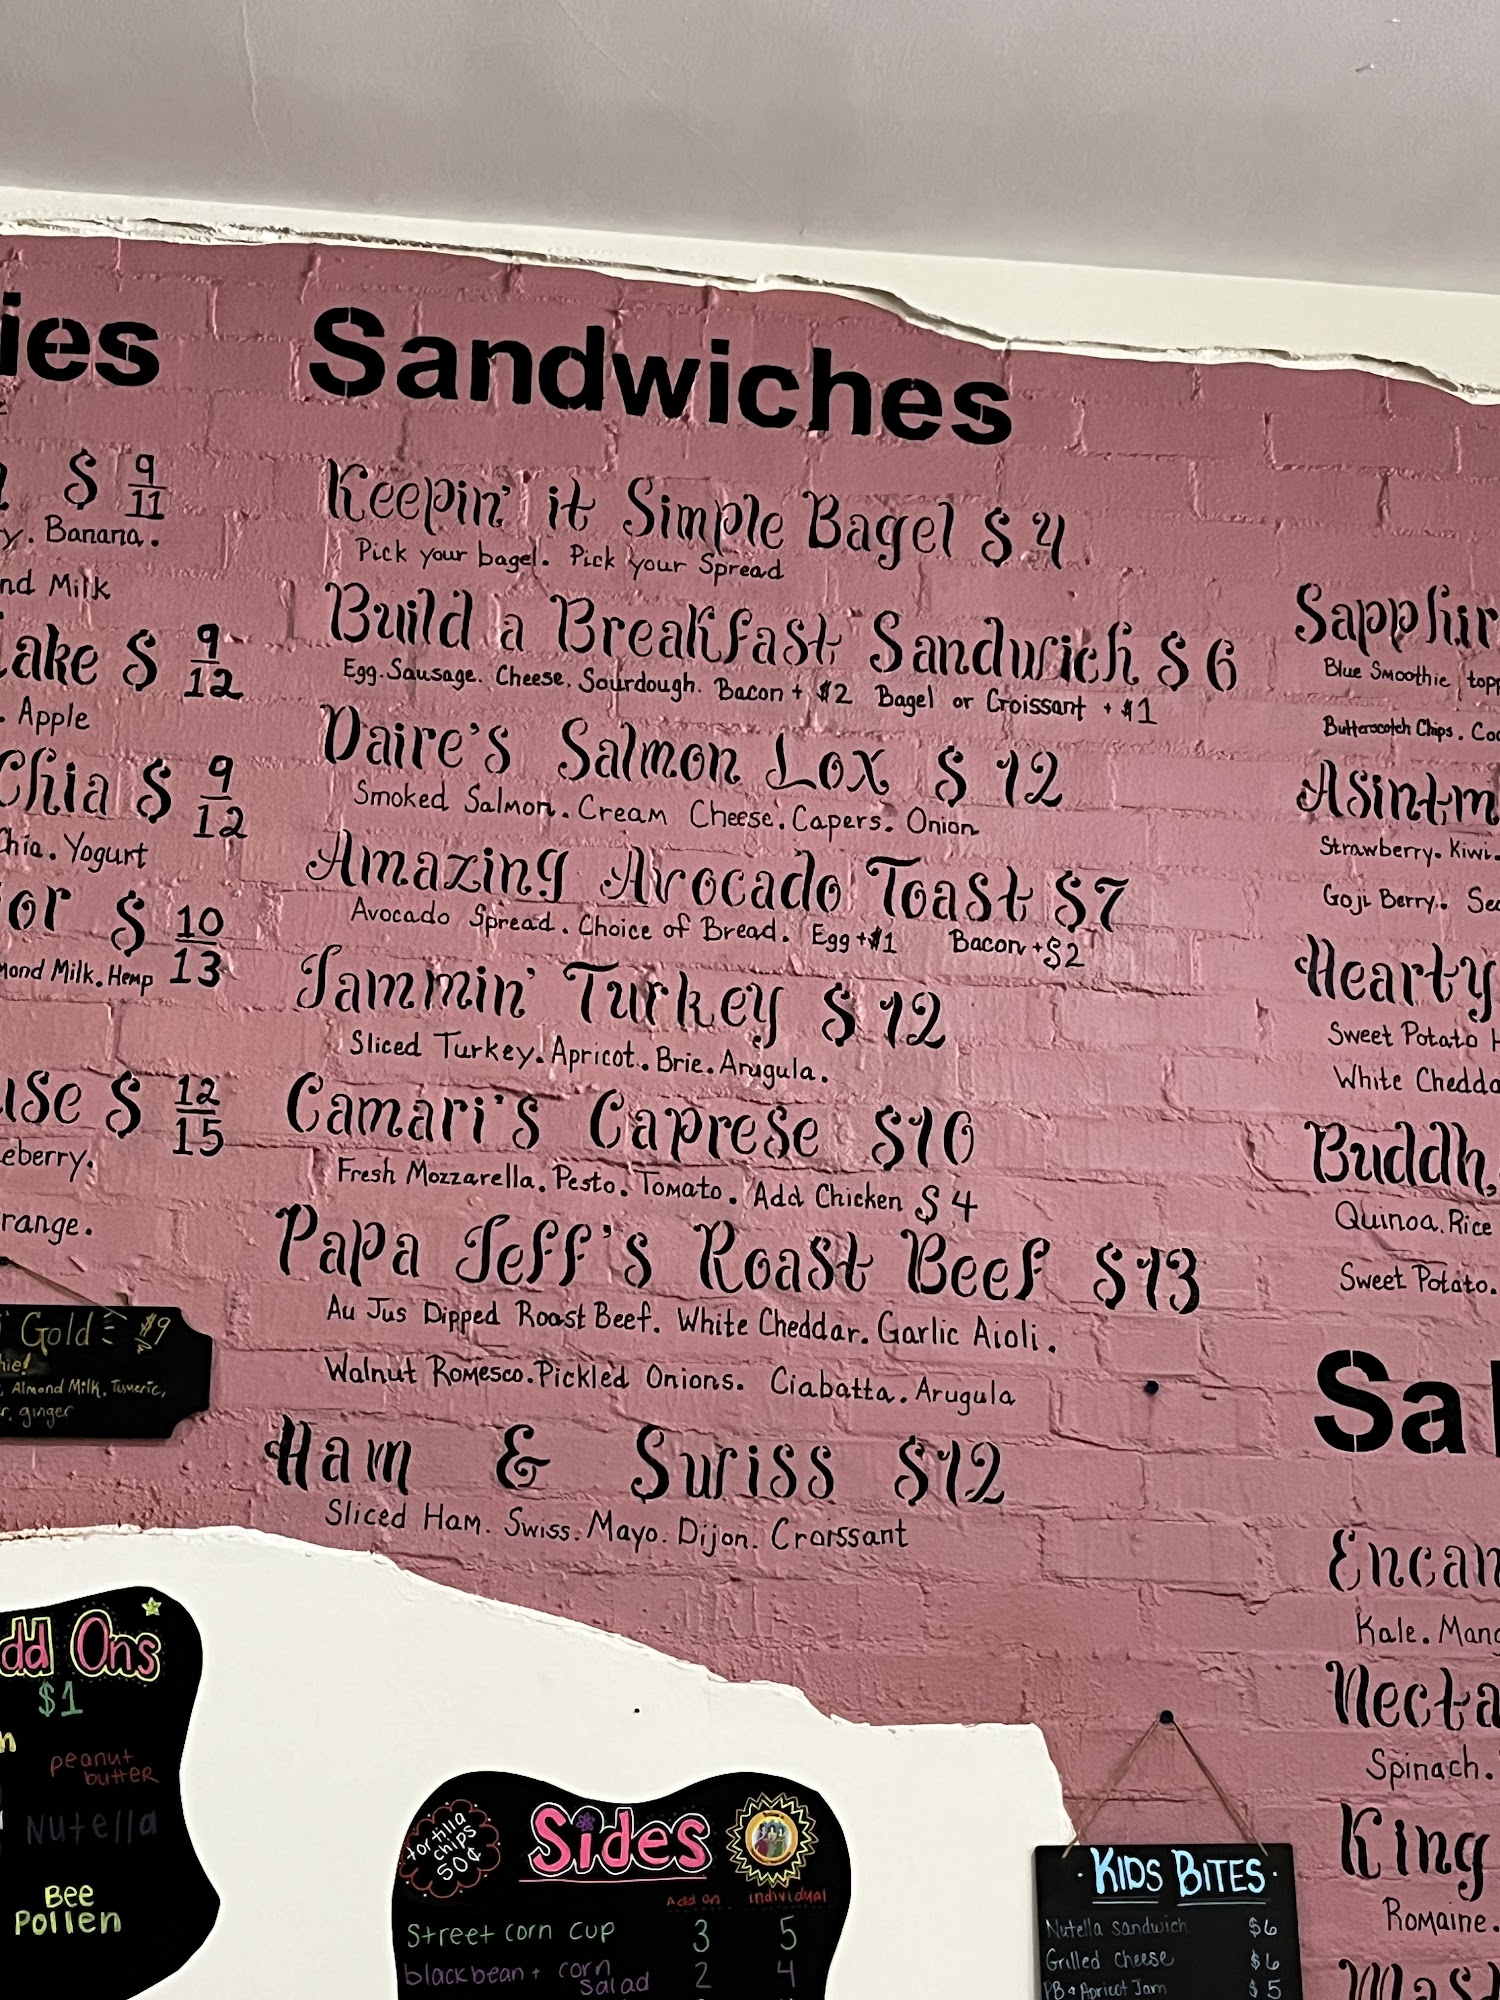 ies
$ 9/11
y. Banana.
nd Milk
ake $ 9/12
. Apple
Chia $ 9/12
Chia. Yogurt
or $ 10/13
mond Milk. Hemp
use $ 12/15
eberry.
range.
Gold $9
hie!
, Almond Milk. Tumeric,
r. ginger
dd Ons
$1
peanut
butter
Nutella
Bee
Pollen
Sandwiches
Keepin' it Simple Bagel $4
Pick your bagel. Pick your Spread
Build a Breakfast Sandwich $6
Egg. Sausage. Cheese. Sourdough. Bacon + $2 Bagel or Croissant + $1
Daire's Salmon Lox $12
Smoked Salmon. Cream Cheese. Capers. Onion
Amazing Avocado Toast $7
Avocado Spread. Choice of Bread. Egg +$1 Bacon +$2
Jammin' Turkey $12
Sliced Turkey. Apricot. Brie. Arugula.
Camari's Caprese $10
Fresh Mozzarella. Pesto. Tomato. Add Chicken $4
Papa Jeff's Roast Beef $13
Au Jus Dipped Roast Beef. White Cheddar. Garlic Aioli.
Walnut Romesco. Pickled Onions. Ciabatta. Arugula
Ham & Swiss $12
Sliced Ham. Swiss. Mayo. Dijon. Croissant
tortilla
chips
50¢
Sides
Add on individual
Street corn cup 3 5
blackbean + corn
salad 2 4
Sapphir
Blue Smoothie topp
Butterscotch Chips. Coc
Asintm
Strawberry. Kiwi.
Goji Berry. See
Hearty
Sweet Potato H
White Chedda
Buddh
Quinoa. Rice
Sweet Potato.
Sal
Encan
Kale. Mang
Necta
Spinach.
King
Romaine.
Mas
Kids Bites
Nutella Sandwich $6
Grilled Cheese $6
PB & Apricot Jam $5